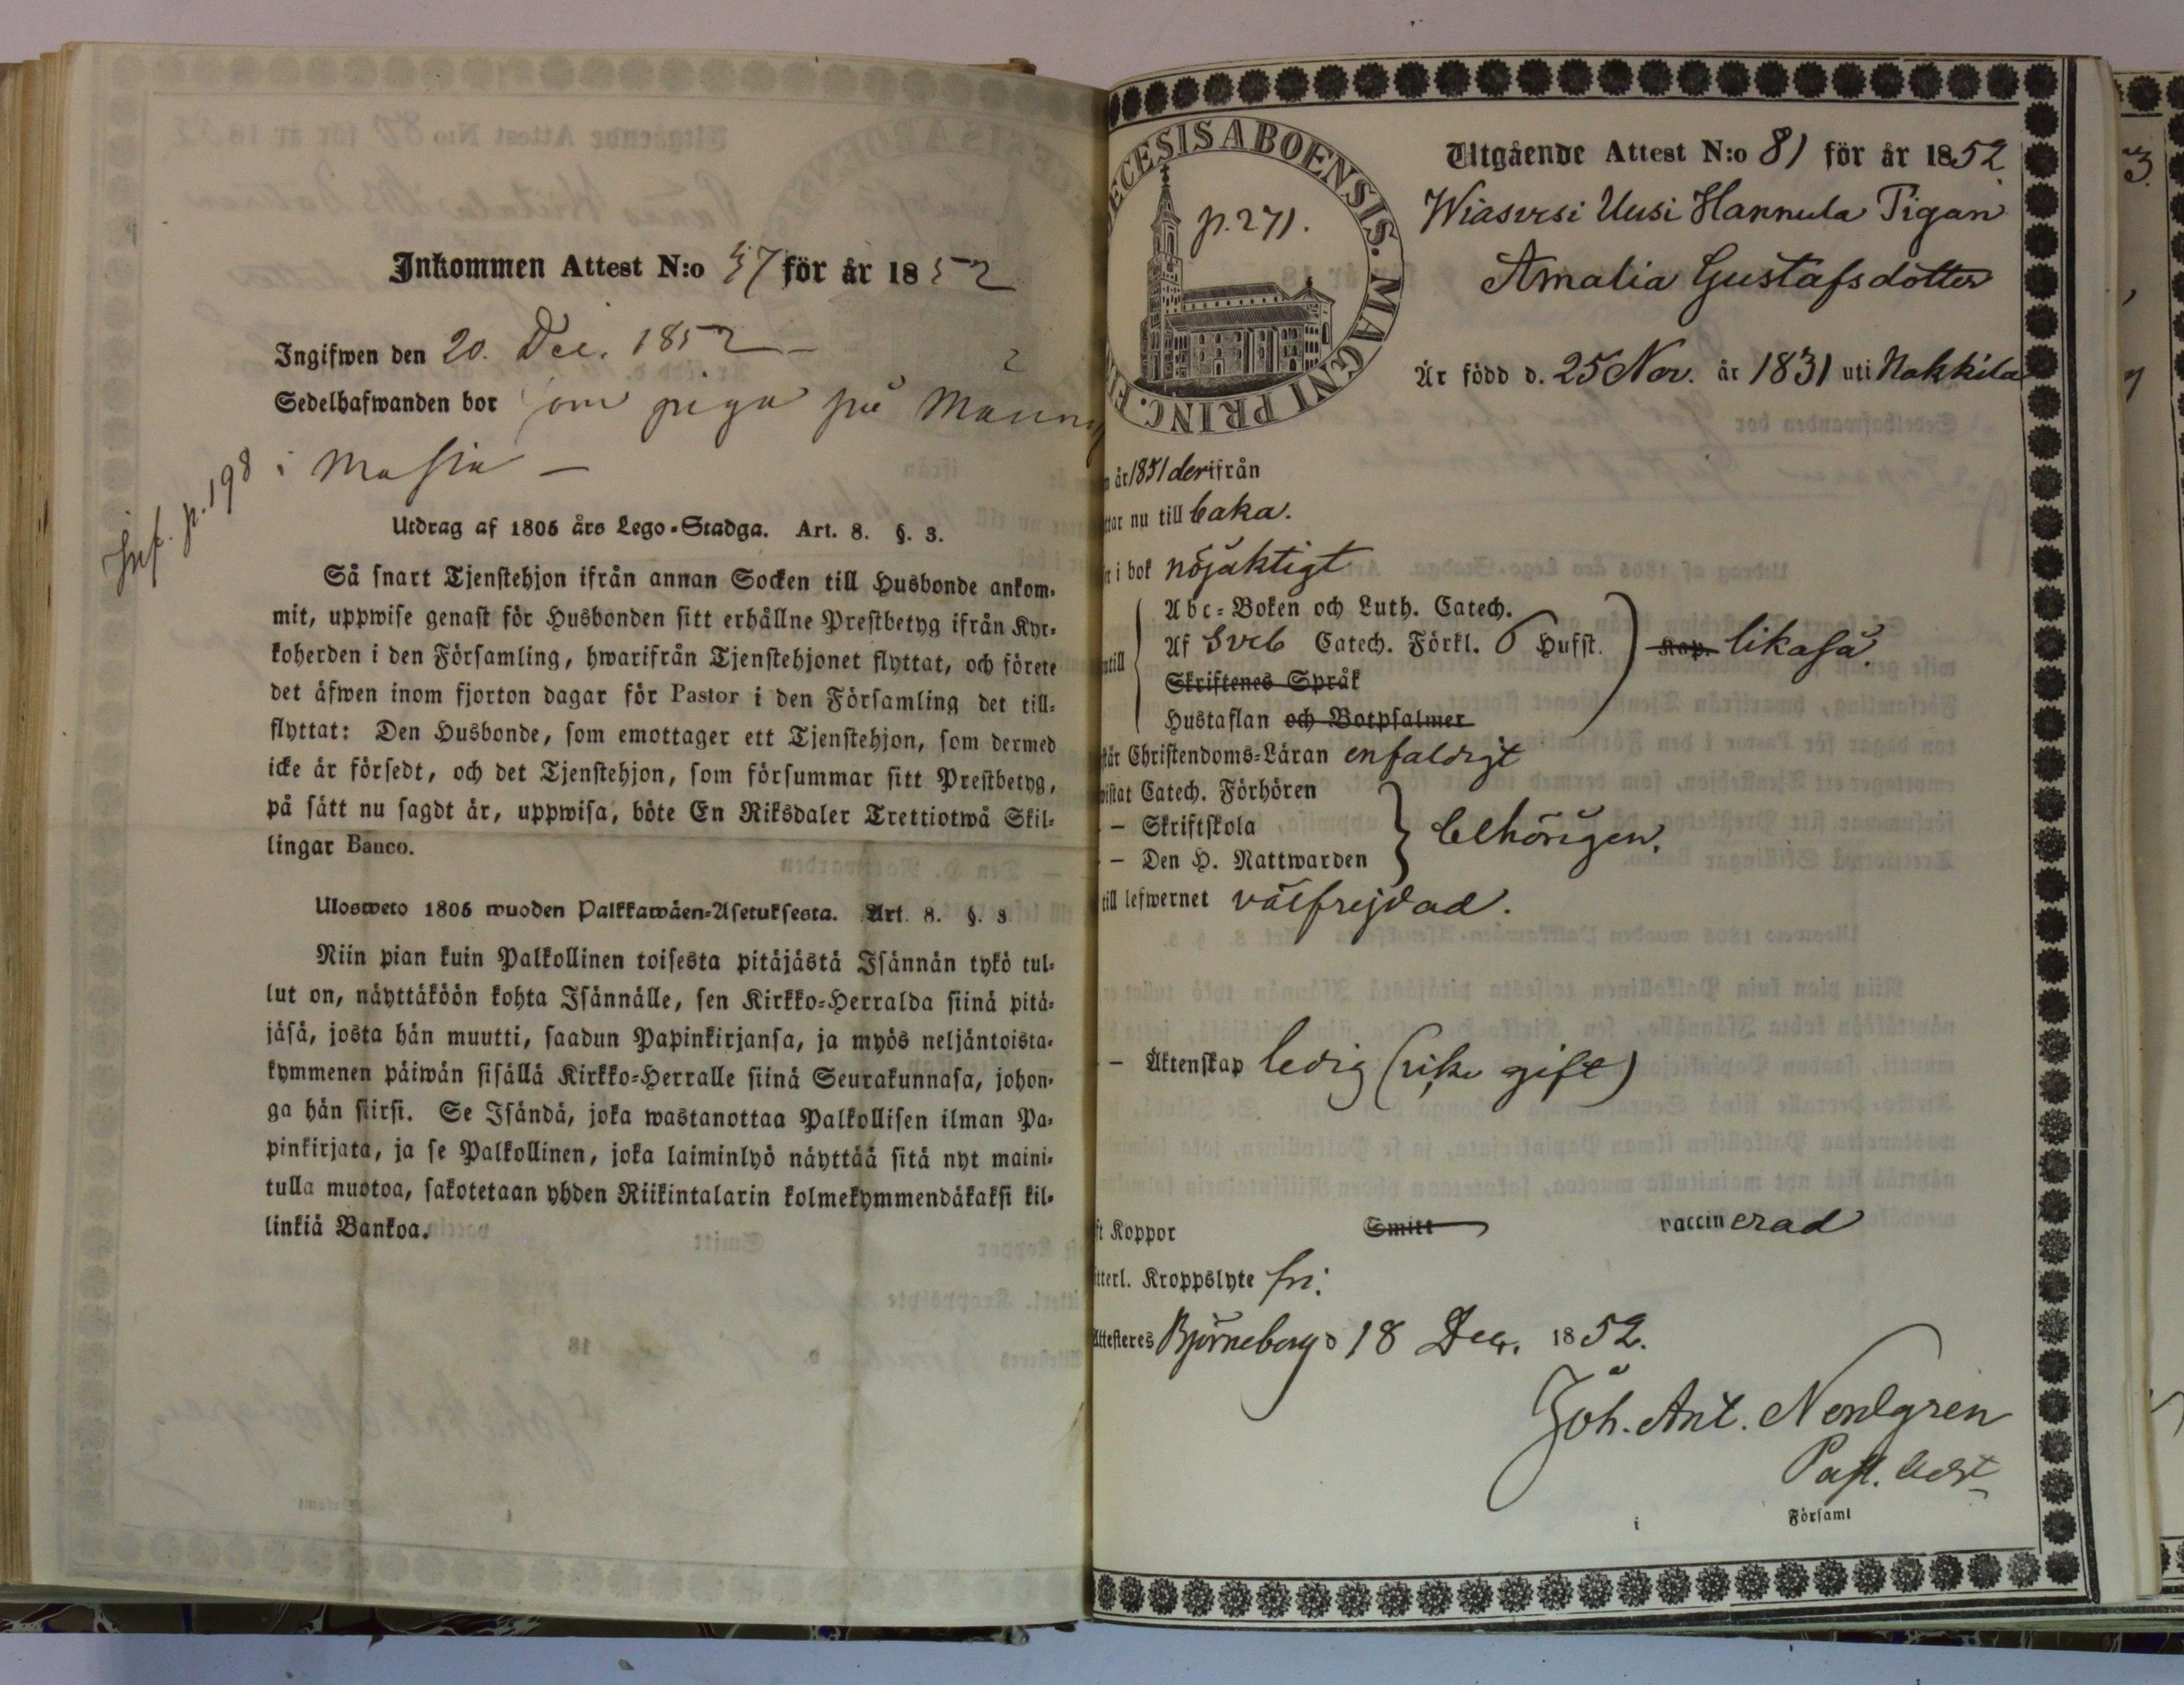 Inkommen Attest N:o 57 för år 1852
Ingifwen den 20. Dec. 1852 –
Sedelhafwanden bor som piga på
i Masia –
Inf. p. 198
Utdrag af 1805 års Lego-Stadga. Art. 8. §. 3.
Så snart Tjenstehjon ifrån annan Socken till Husbonde ankom-
mit, uppwise genast för Husbonden sitt erhållne Prestbetyg ifrån Kyr-
koherden i den Församling, hwarifrån Tjenstehjonet flyttat, och förete
det äfwen inom fjorton dagar för Pastor i den Församling det till-
flyttat: Den Husbonde, som emottager ett Tjenstehjon, som dermed
icke är försedt, och det Tjenstehjon, som försummar sitt Prestbetyg,
på sätt nu sagdt är, uppwisa, böte En Riksdaler Trettiotwå Skil-
lingar Banco.
Ulosweto 1805 wuoden Palkkawäen-Asetuksesta. Art. 8. §. 3
Niin pian kuin Palkollinen toisesta pitäjästä Isännän tykö tul-
lut on, näyttäköön kohta Isännälle, sen Kirkko-Herralda siinä pitä-
jäsä, josta hän muutti, saadun Papinkirjansa, ja myös neljäntoista-
kymmenen päiwän sisällä Kirkko-Herralle siinä Seurakunnasa, johon-
ga hän siirsi. Se Isändä, joka wastanottaa Palkollisen ilman Pa-
pinkirjata, ja se Palkollinen, joka laiminlyö näyttää sitä nyt maini-
tulla muotoa, sakotetaan yhden Riikintalarin kolmekymmendäkaksi kil-
linkiä Bankoa.
ECESIS ABOENSIS. MAGNI PRINC. FI
p. 271.
Utgående Attest N:o 81 för år 1852
Wiasvesi Uusi Hannula Pigan
Amalia Gustafsdotter
Är född d. 25 Nov. år 1831 uti Nakkila
år 1851 derifrån
nu till baka.
i bok nöjaktigt
Abc-Boken och Luth. Catech.
Af Sveb Catech. Förkl. 6 Hufst. Kap. likaså.
Skriftenes Språk
Hustaflan och Botpsalmer
Christendoms-Läran enfaldigt
Catech. Förhören
– Skriftskola
– Den H. Nattwarden
behörigen.
till lefwernet välfrejdad.
– Äktenskap ledig (icke gift)
Koppor Smitt vaccinerad
Kroppslyte fri.
Attesteres Björneborg d 18 Dec. 1852.
Joh. Ant. Nordgren
Past. Adst
i Församl